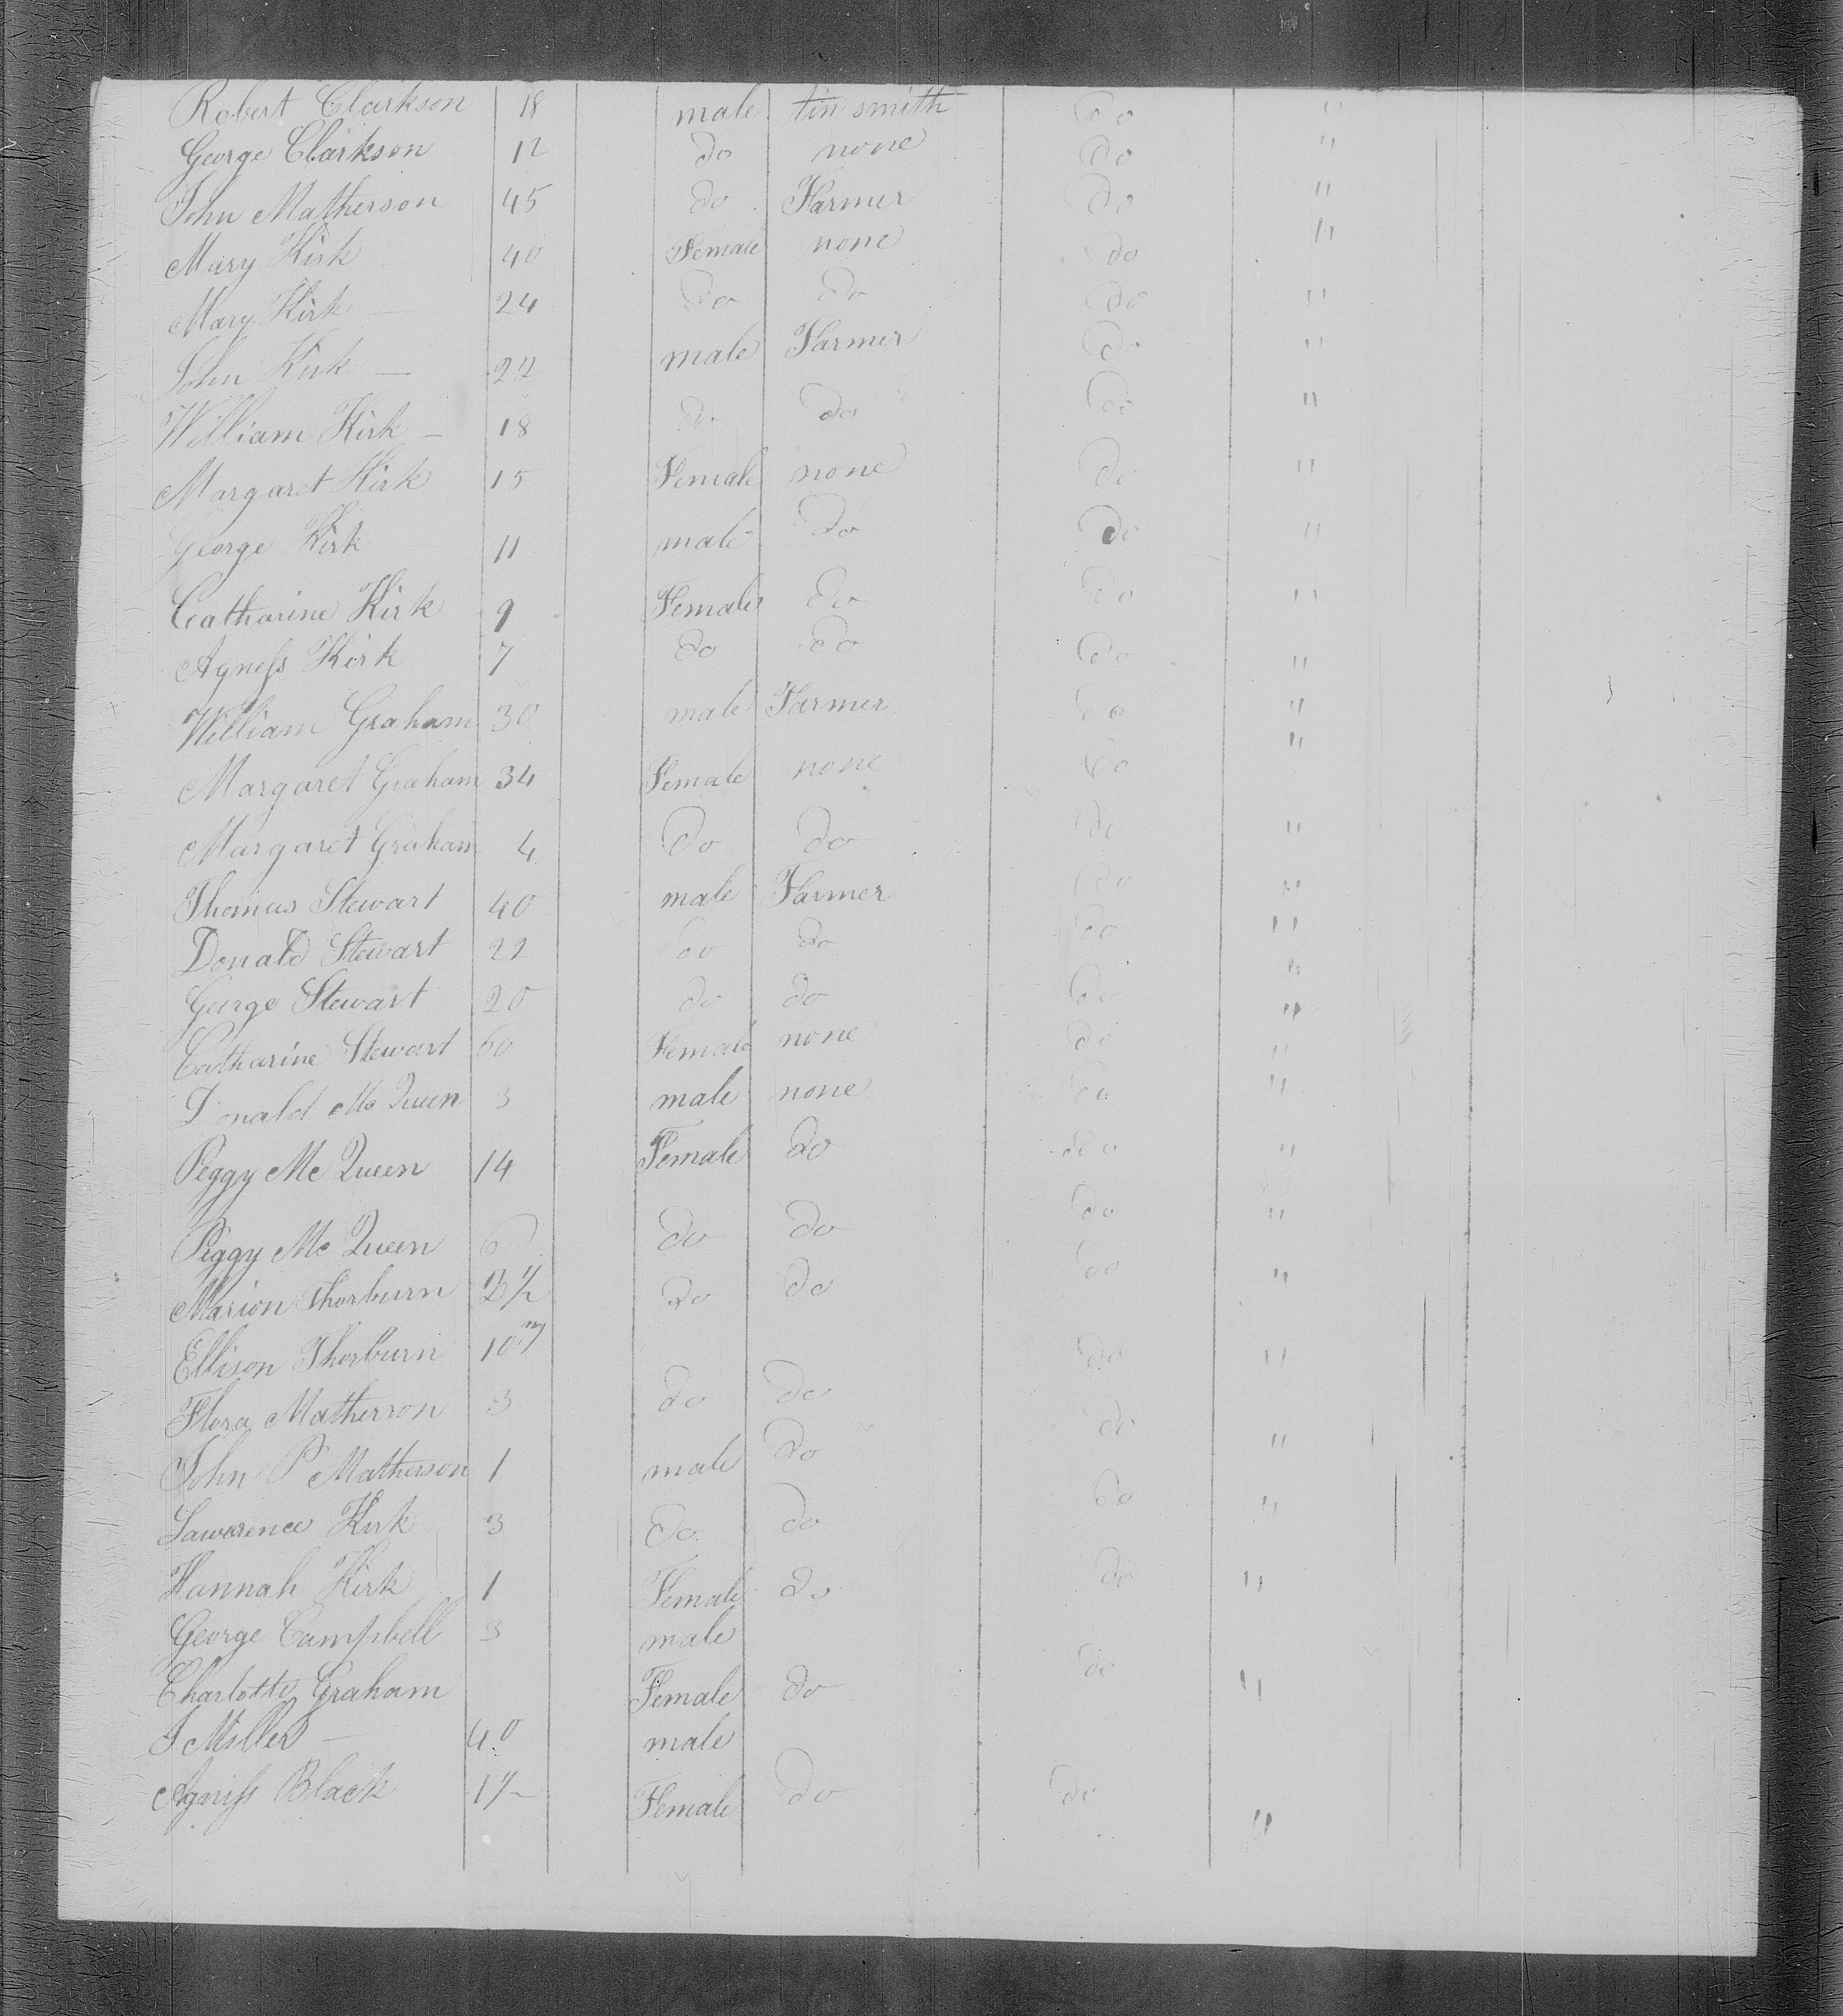 Robert Clarkson 18 male tin smith do "
George Clarkson 12 do none do "
John Matherson 45 do Farmer do "
Mary Kirk 40 Female none do "
Mary Kirk — 24 do do do "
John Kirk — 22 male Farmer do "
William Kirk — 18 do do do "
Margaret Kirk 15 Female none do "
George Kirk 11 male do do "
Catharine Kirk 9 Female do do "
Agness Kirk 7 do do do "
William Graham 30 male Farmer do "
Margaret Graham 34 Female none do "
Margaret Graham 4 do do do "
Thomas Stewart 40 male Farmer do "
Donald Stewart 22 do do do "
George Stewart 20 do do do "
Catharine Stewart 60 Female none do "
Donald McQueen 3 male none do "
Peggy McQueen 14 Female do do "
Peggy McQueen 6 do do do "
Marion Thorburn 2½ do do do "
Ellison Thorburn 10 do "
Flora Matherson 3 do do do
John P Matherson 1 male do "
Lawerence Kirk 3 do do do "
Hannah Kirk 1 Female do do "
George Campbell 3 male
Charlotte Graham Female do do "
J Miller — 40 male
Agniss Black Female do do "